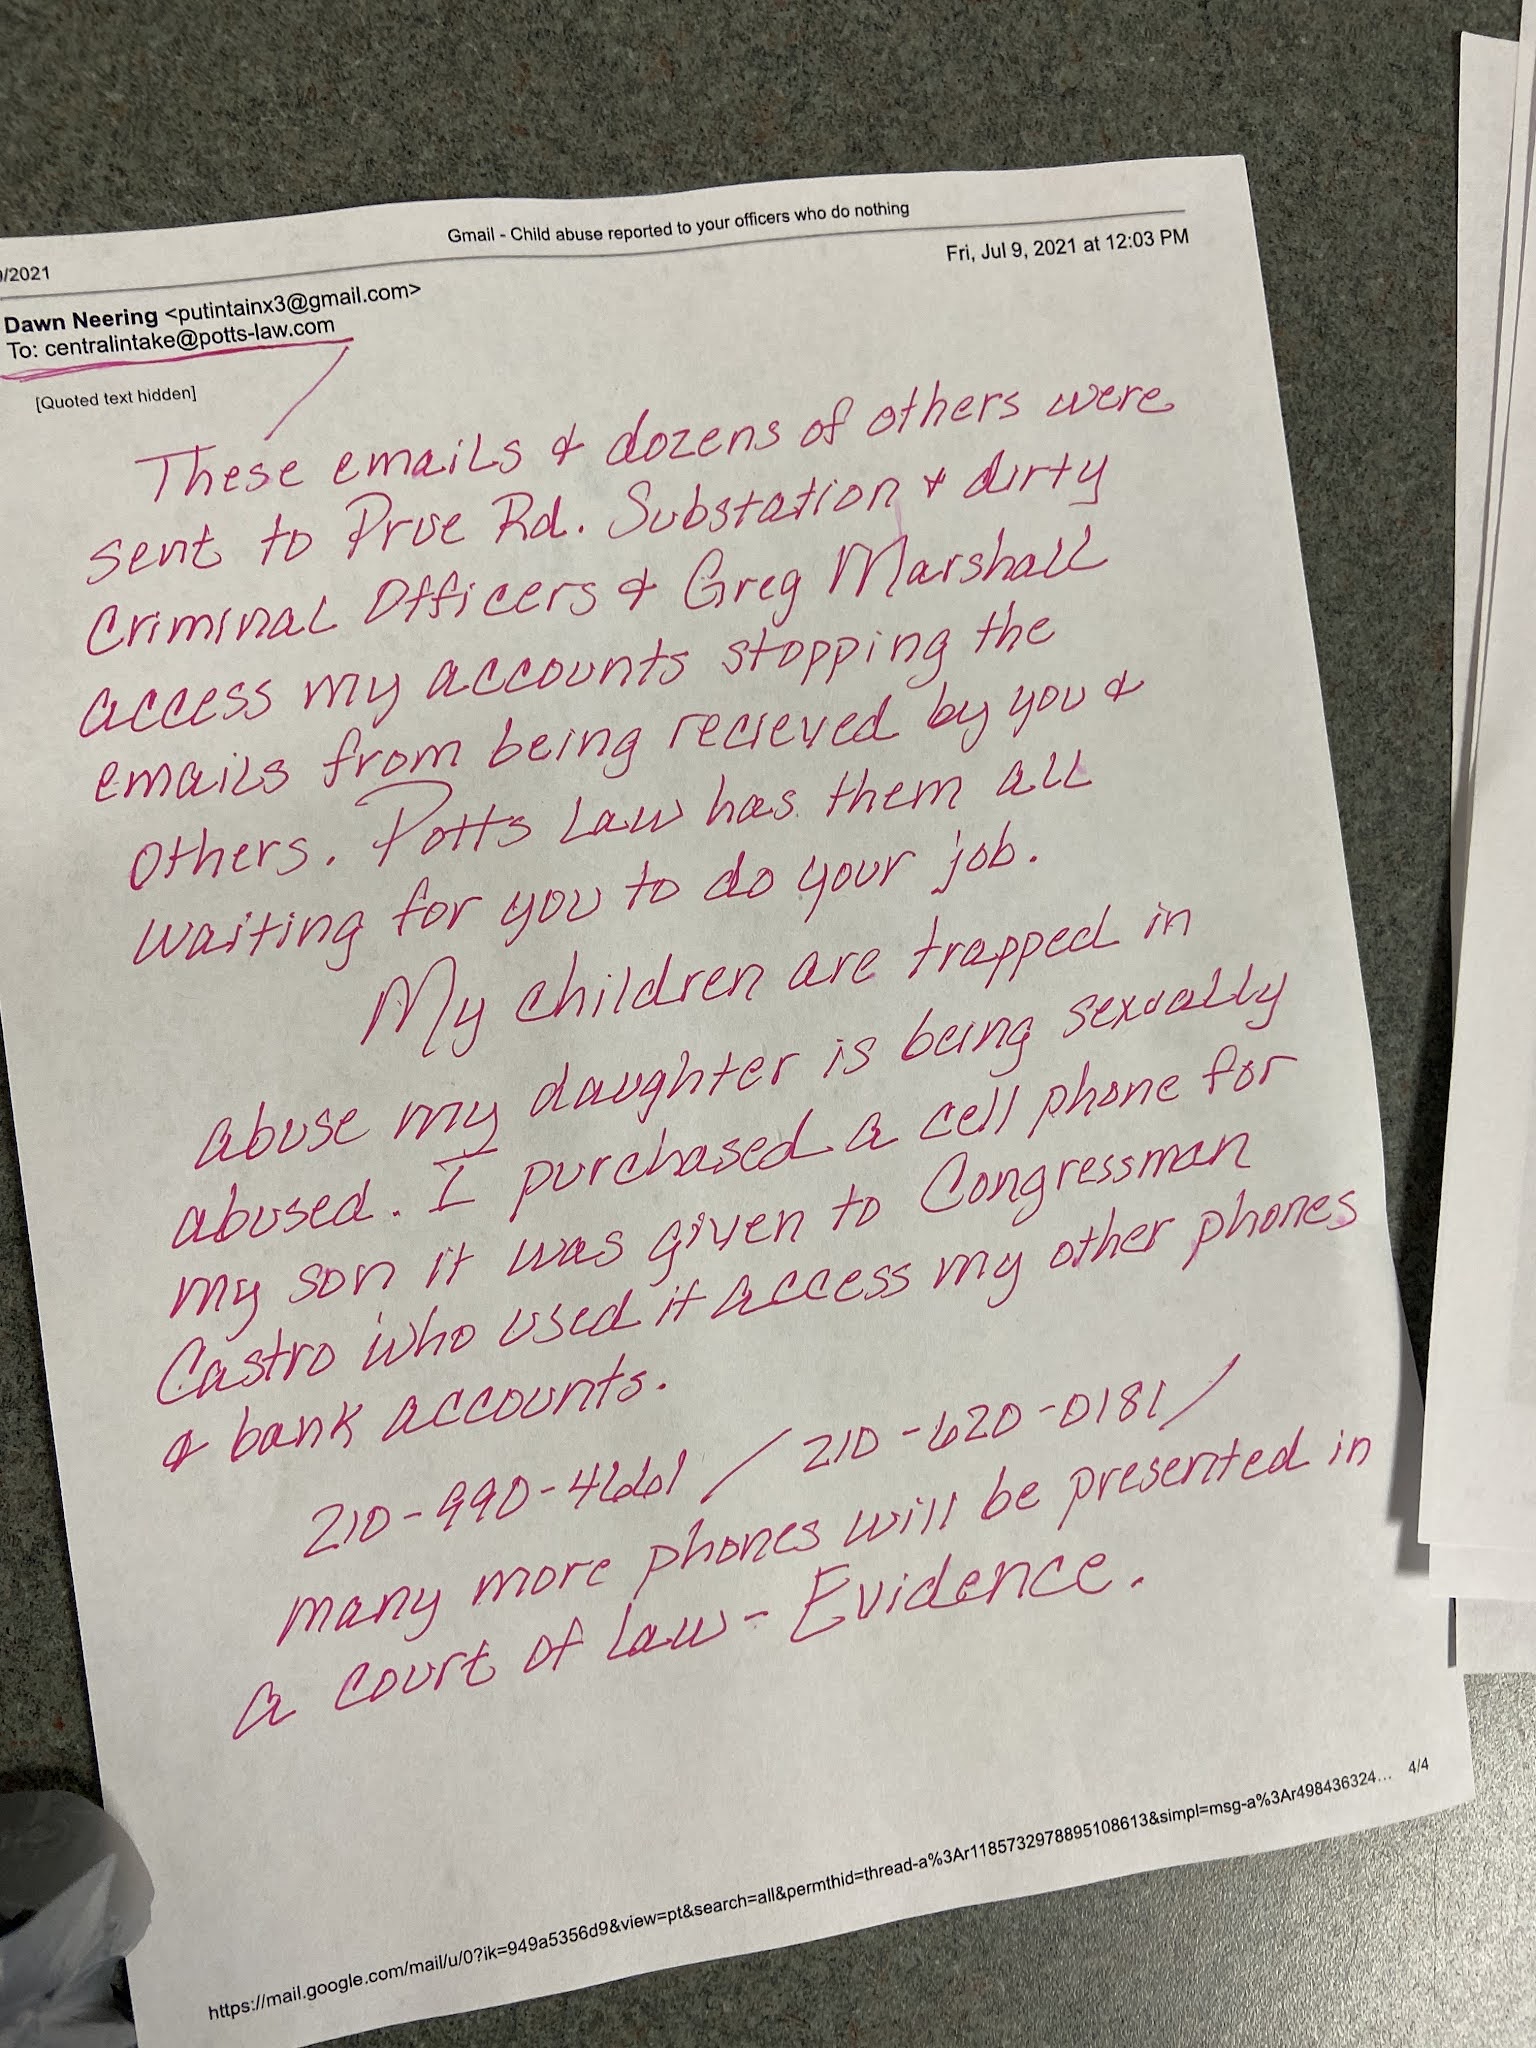 Gmail - Child abuse reported to your officers who do nothing
9/2021
Fri, Jul 9, 2021 at 12:03 PM
Dawn Neering <putintainx3@gmail.com>
To: centralintake@potts-law.com
[Quoted text hidden]
These emails & dozens of others were
sent to Prue Rd. Substation & dirty
Criminal Officers & Greg Marshall
access my accounts stopping the
emails from being recieved by you &
others. Potts Law has them all
waiting for you to do your job.
My children are trapped in
abuse my daughter is being sexually
abused. I purchased a cell phone for
my son it was given to Congressman
Castro who used it access my other phones
& bank accounts.
210-990-4661 / 210-620-0181 /
many more phones will be presented in
a court of law - Evidence.
https://mail.google.com/mail/u/0?ik=949a5356d9&view=pt&search=all&permthid=thread-a%3Ar1185732978895108613&simpl=msg-a%3Ar498436324... 4/4